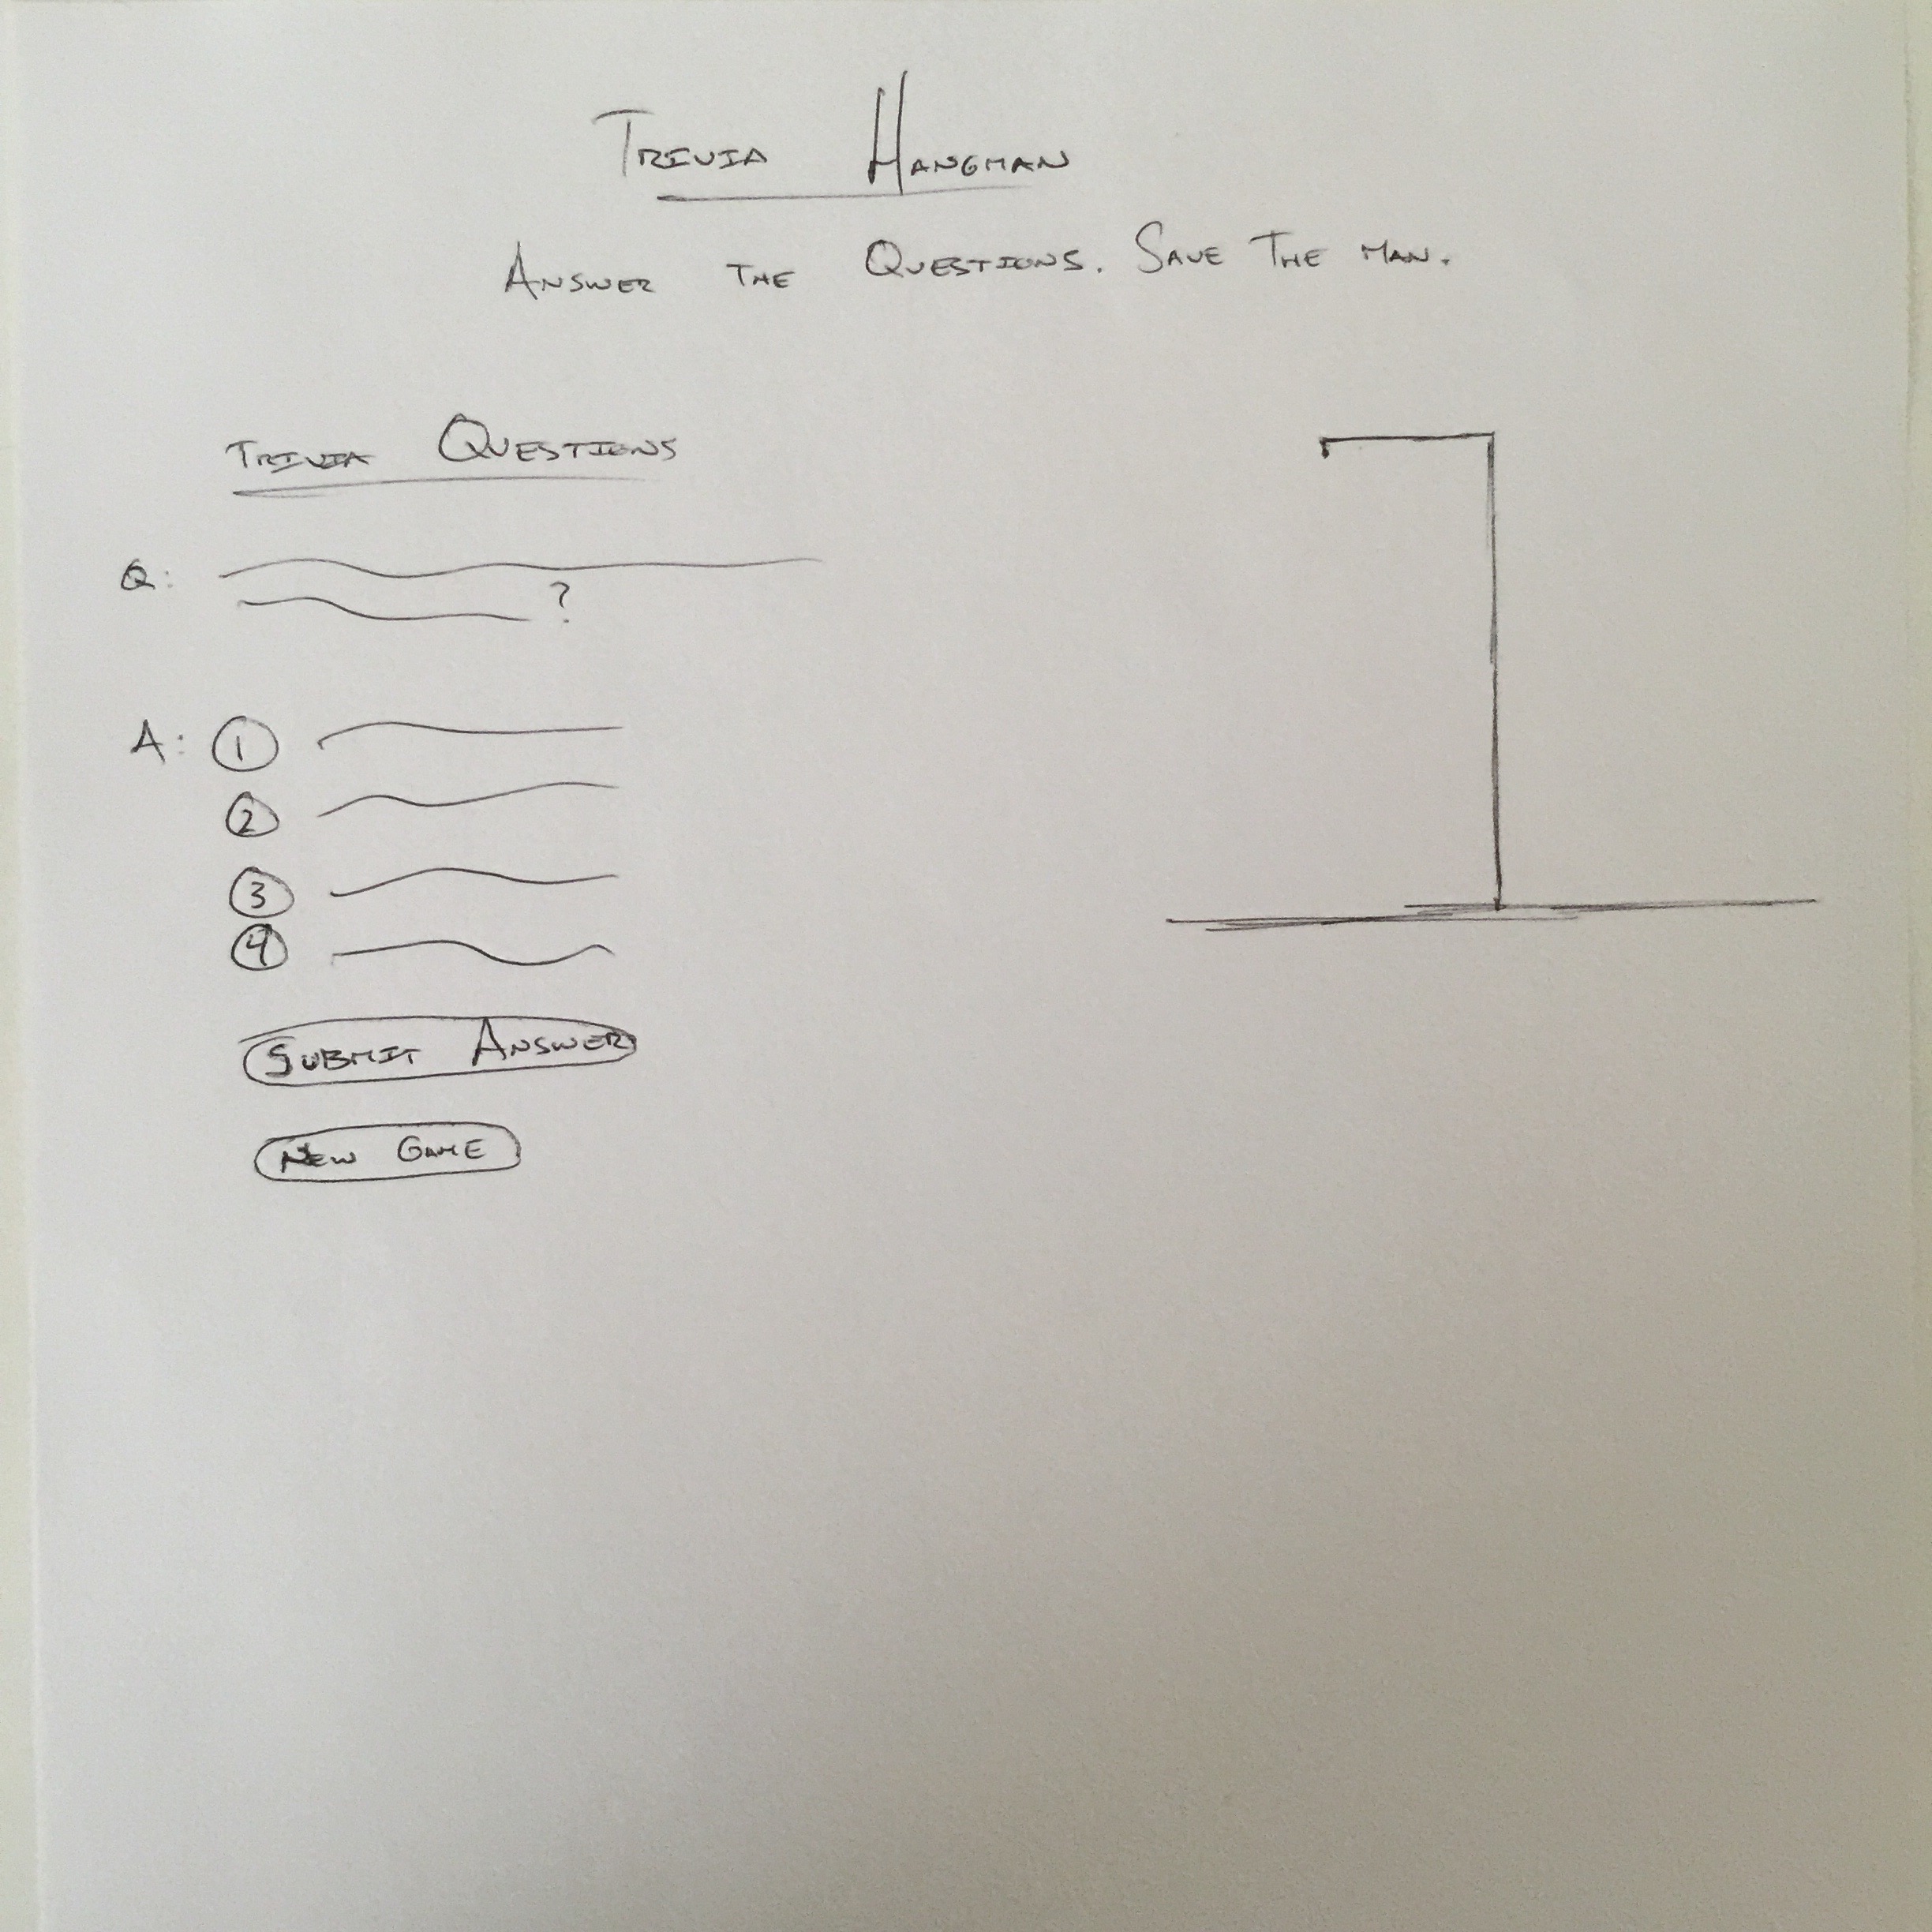 TRIVIA HANGMAN
ANSWER THE QUESTIONS. SAVE THE MAN.
TRIVIA QUESTIONS
Q:
?
A: 1
2
3
4
SUBMIT ANSWER
NEW GAME